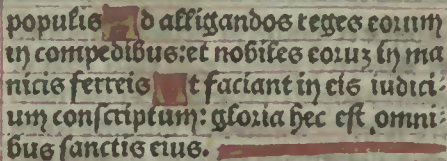 populis Ad alligandos reges eorum
in compedibus: et nobiles eoruz in ma
nicis ferreis Ut faciant in eis iudici-
um conscriptum: gloria hec est omni-
bus sanctis eius.